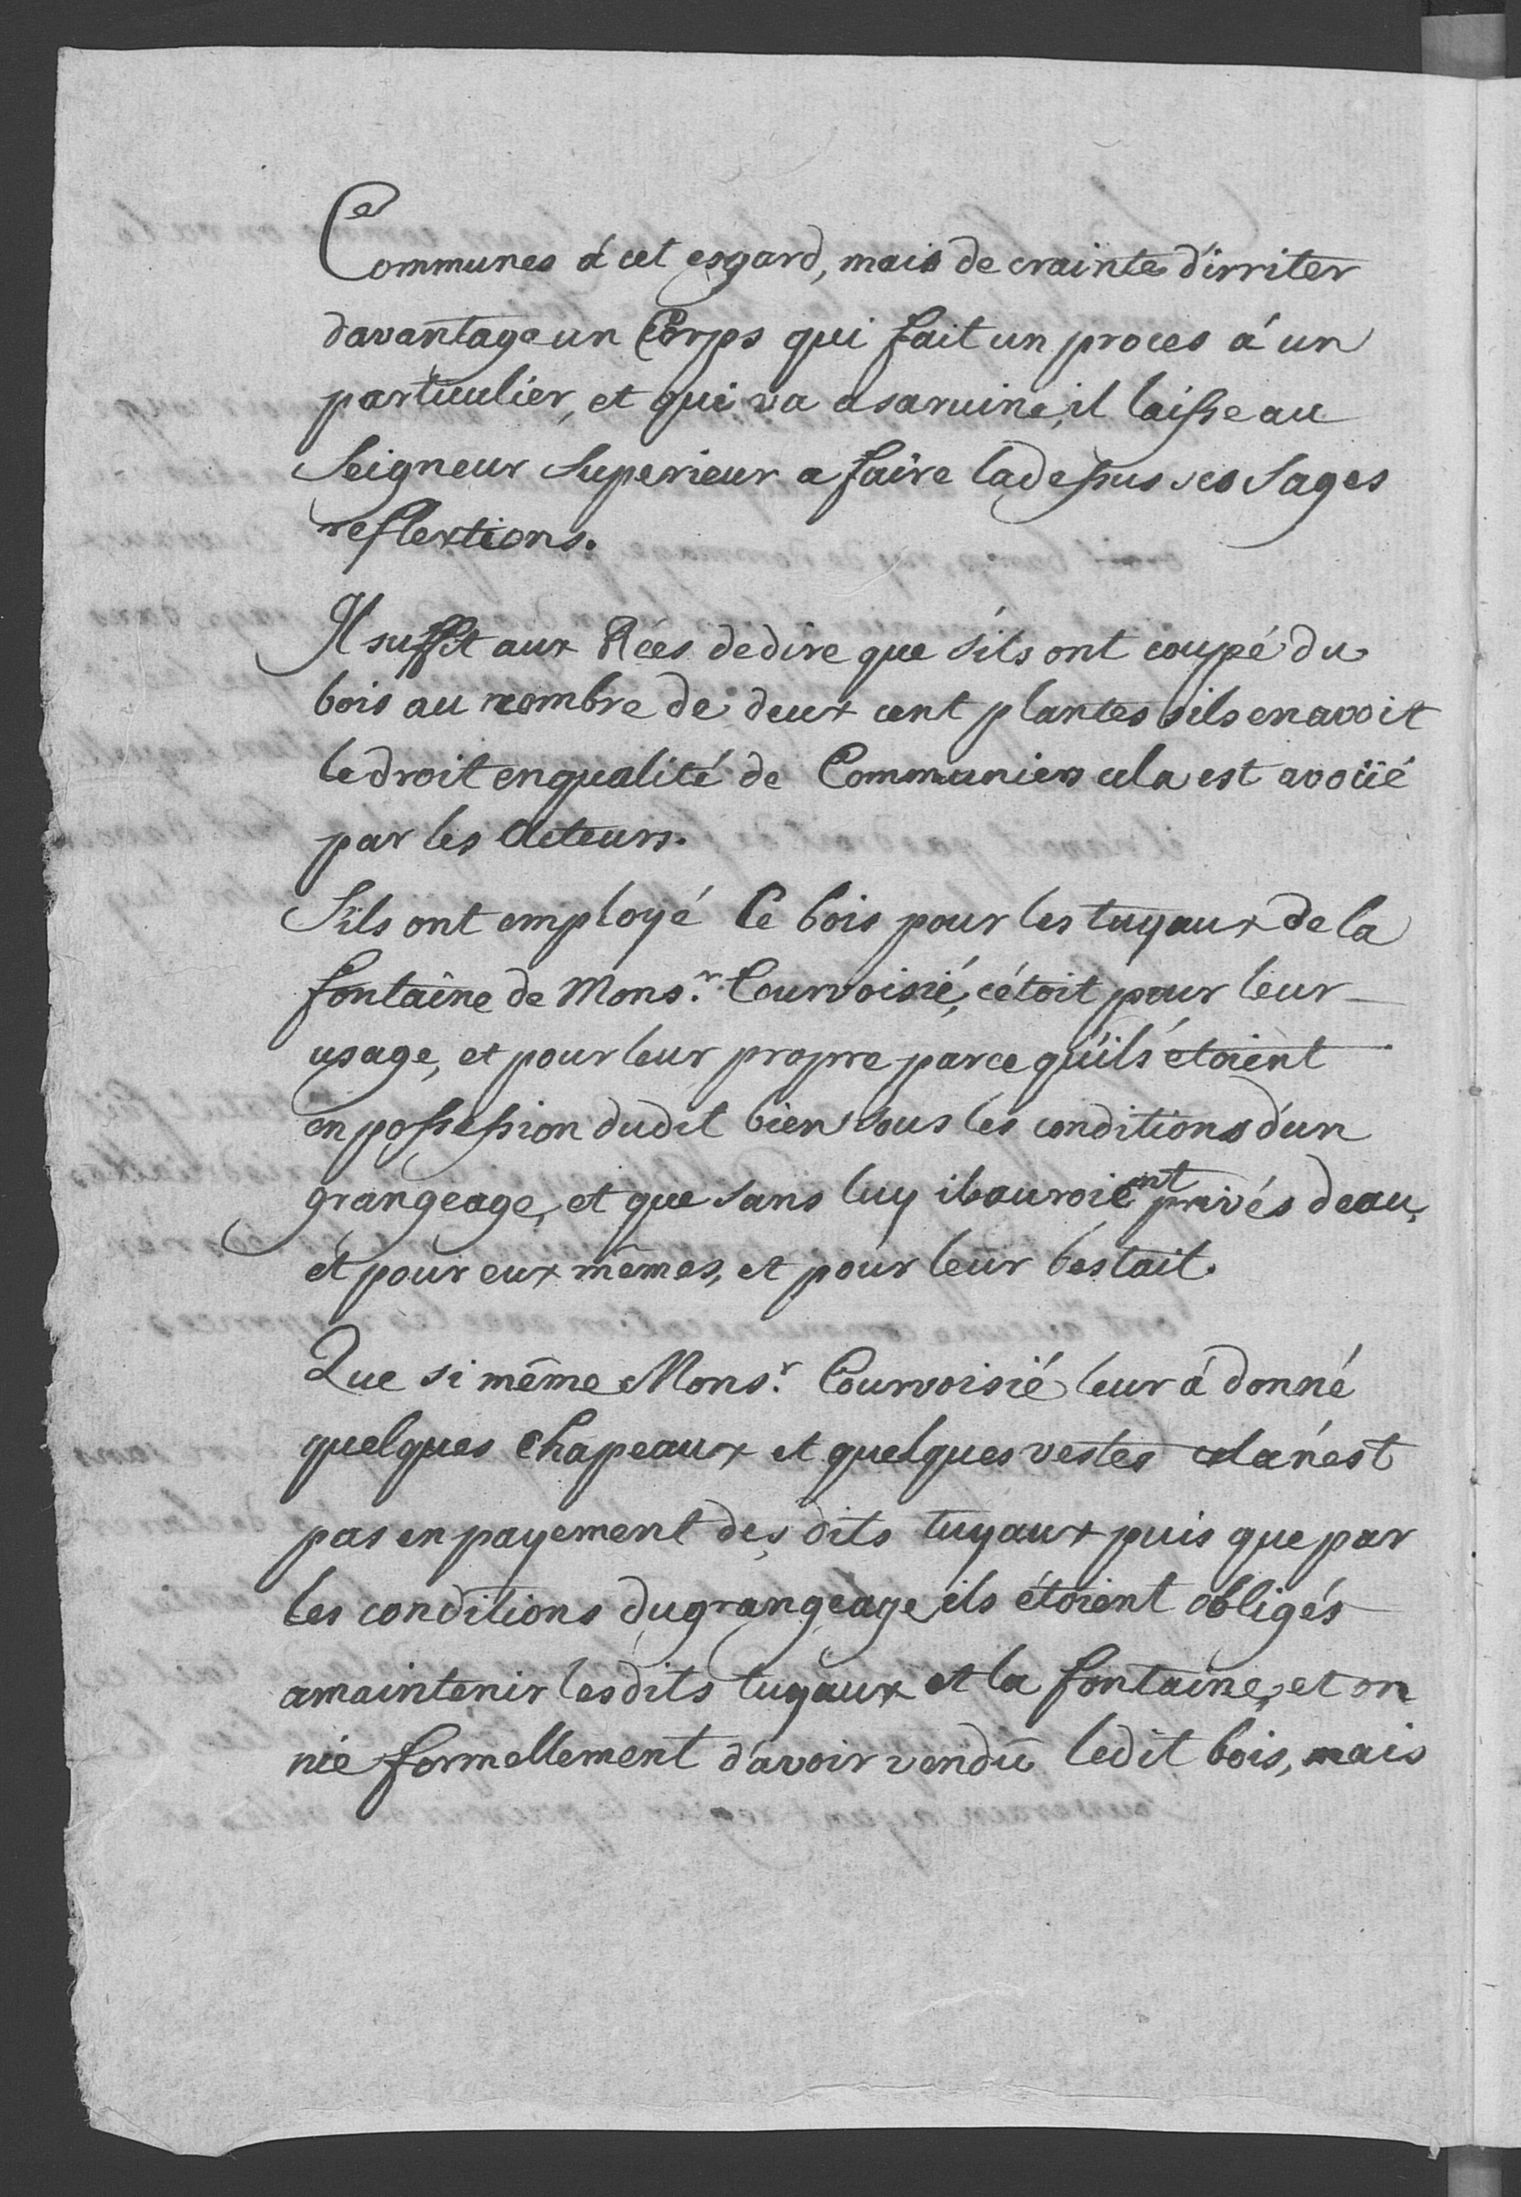 Communes á cet esgard, mais de crainte d'irriter
davantage un Corps qui fait un proces á un
particulier, et qui va a sa ruine, il laisse au
Seigneur Superieur a faire ladessus ses sages
reflextions.
Il suffit aux Rées de dire que s'ils ont coupé du
bois au nombre de deux cent plantes ils en avoit
le droit en qualité de Communiers cela est avoüé
par les Acteurs.
S'ils ont employé Ce bois pour les tuyaux de la
fontaine de Mons.r Courvoisié, c'étoit pour leur
usage, et pour leur propre parce qu'ils étoient
en possession dudit bien sous les conditions d'un
grangeage, et que sans luy ils auroient privés deau,
et pour eux mêmes, et pour leur bestail.
Que si même Mons.r Courvoisié leur á donné
quelques Chapeaux et quelques vestes cela n'est
pas en payement des dits tuyaux puis que par
les conditions du grangéage ils étoient obligés
a maintenir lesdits tuyaux et la fontaine, et on
nie formellement d'avoir vendu ledit bois, mais